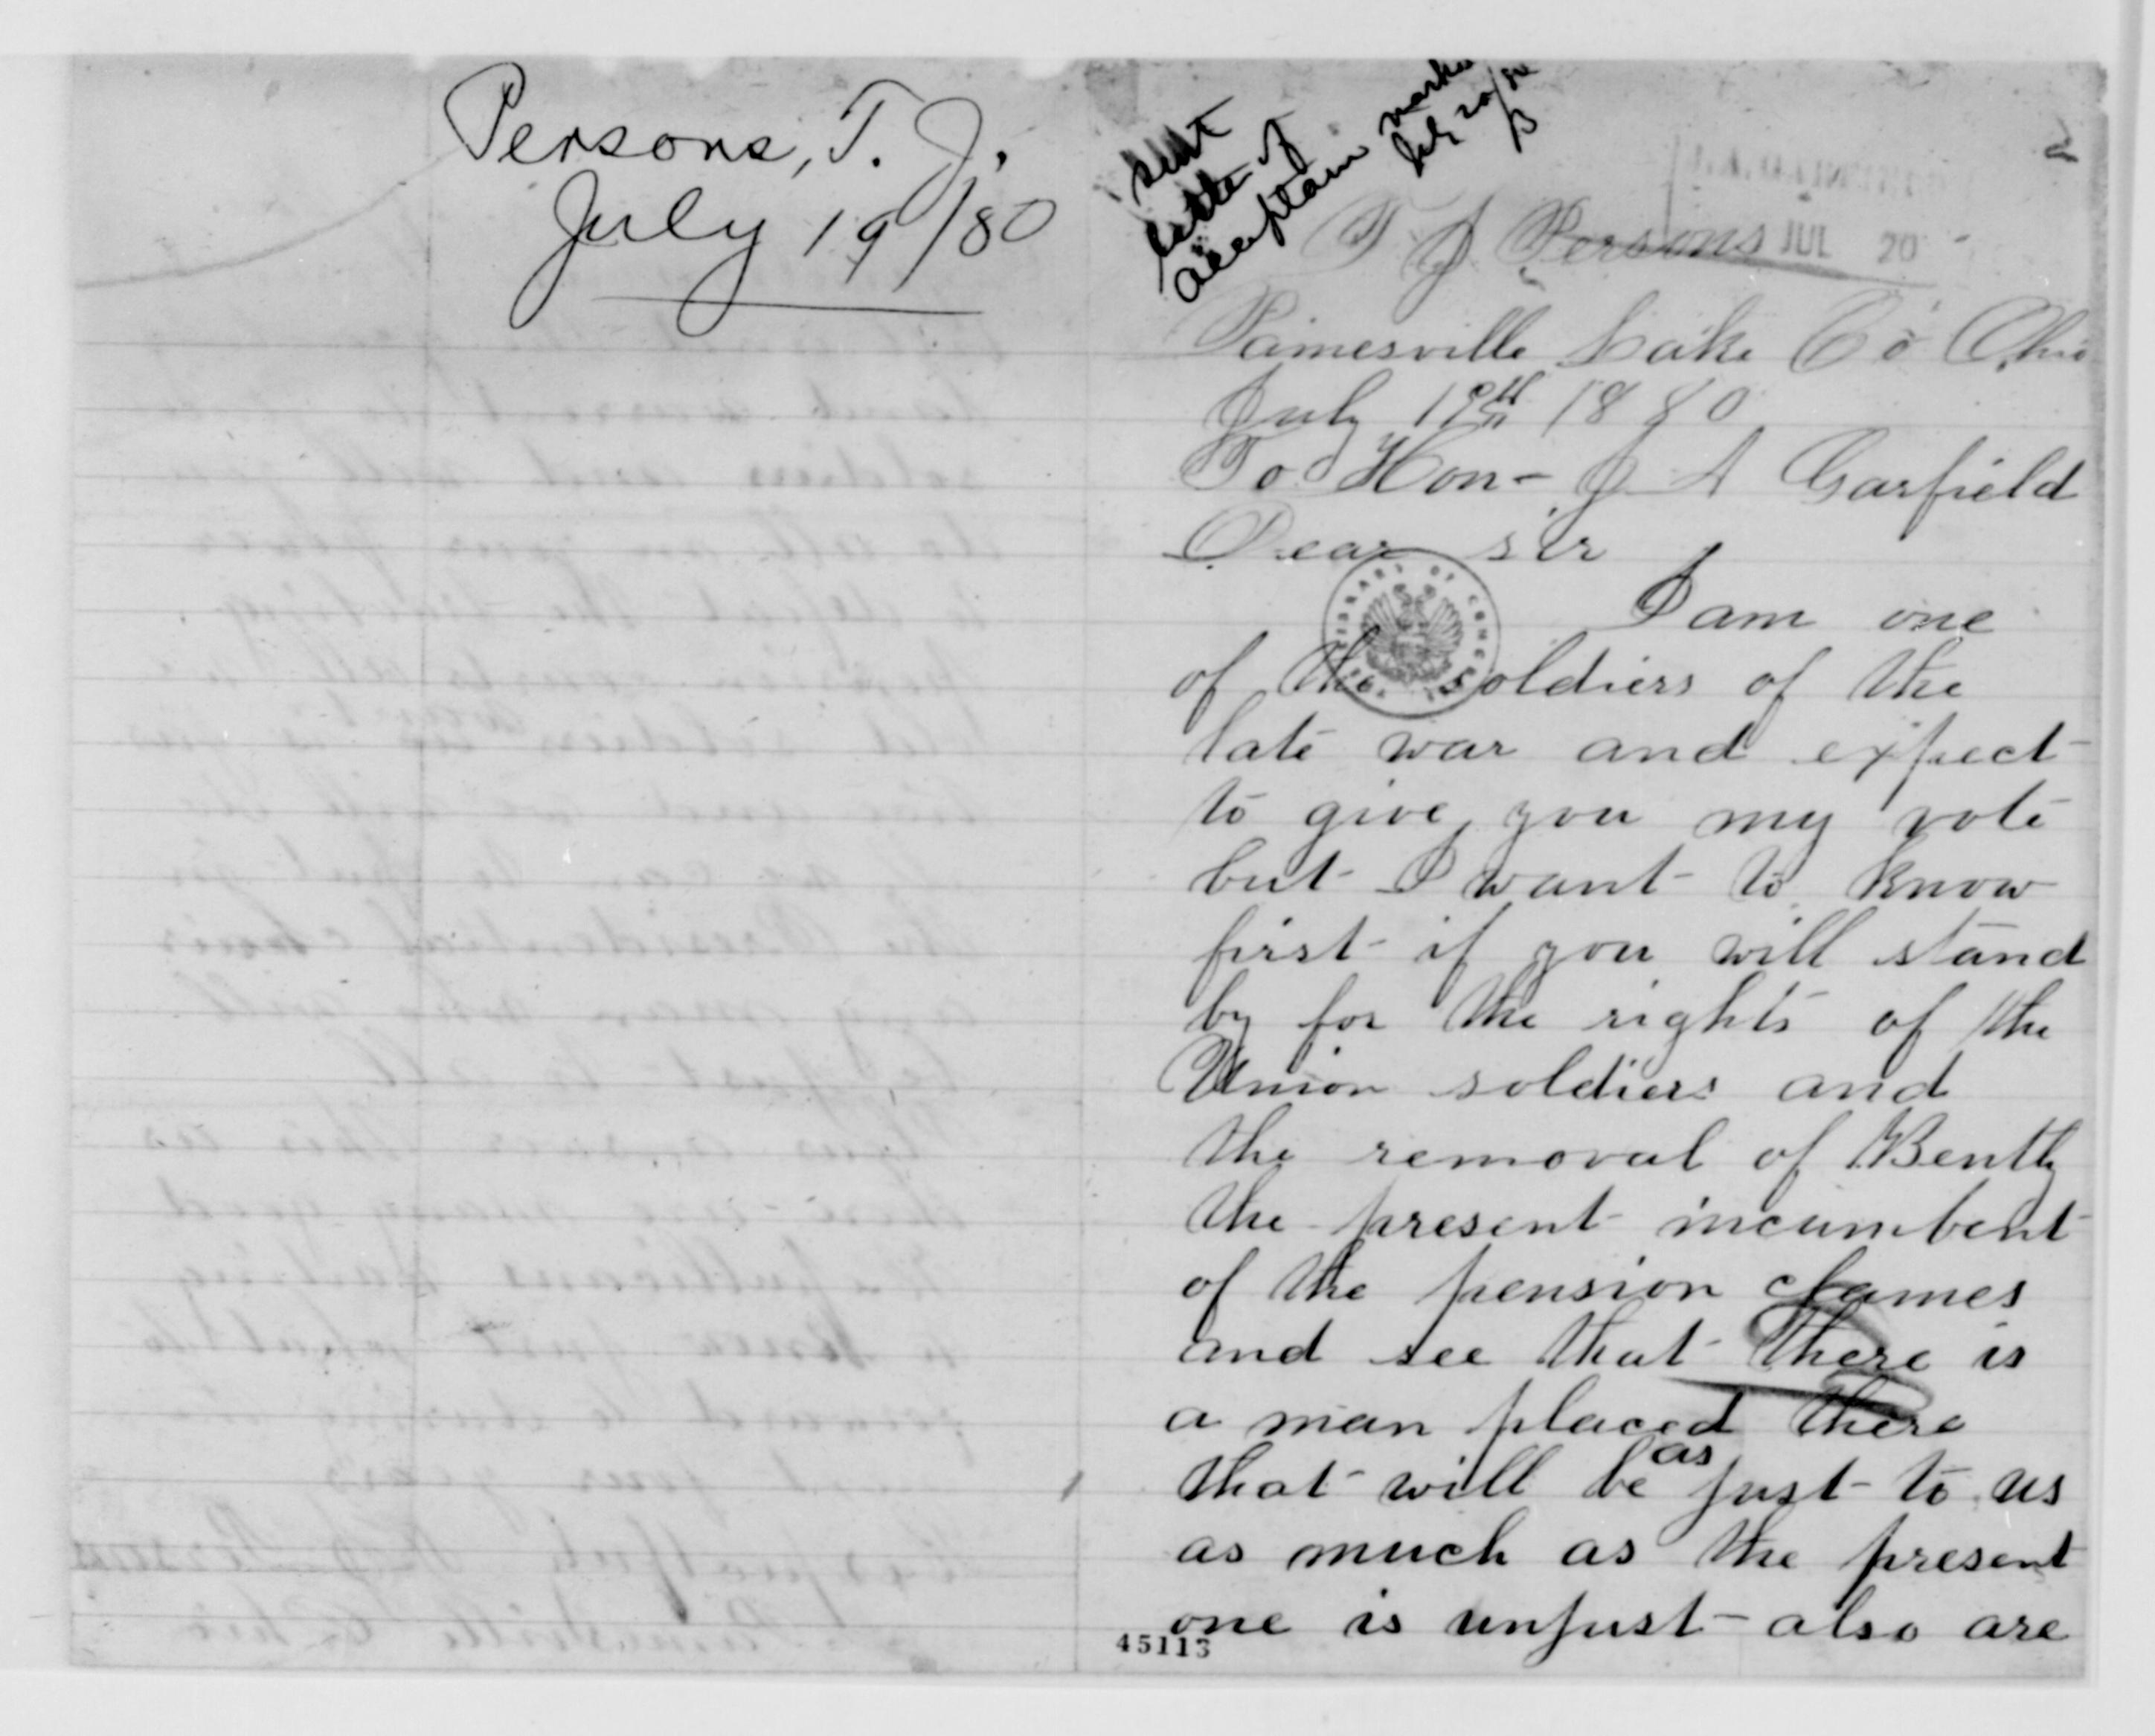 Persons, T. J.
July 19/80
sent
letter of
acceptance marked
July 20/80
B
T J Persons
JUL 20
Painesville Lake Co Ohio
July 19th 1880
To Hon- J A Garfield
Dear sir
LIBRARY OF CONGRESS
I am one
of the soldiers of the
late war and expect
to give you my vote
but I want to know
first if you will stand
by for the rights of the
Union soldiers and
the removal of Bently
the present incumbent
of the pension claimes
and see that there is
a man placed there
that will be as just to us
as much as the present
one is unjust - also are
45113